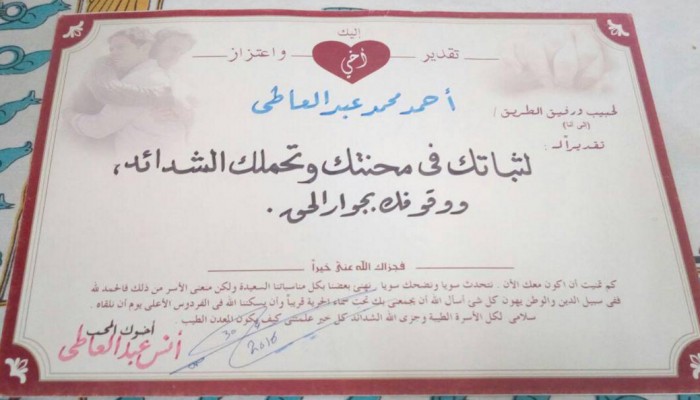 إليك
تقدير أخي واعتزاز
لحبيب ورفيق الطريق / أحمد محمد عبد العاطى
تقديراً لـ :
لثباتك فى محنتك وتحملك الشدائد،
ووقوفك بجوار الحق .
فجزاك الله عنى خيراً
كم تمنيت أن أكون معك الآن .. نتحدث سويا ونضحك سويا .. نهنى بعضنا بكل مناسباتنا السعيدة ولكن منعنى الأسر من ذلك فالحمد لله
ففى سبيل الدين والوطن يهون كل شئ أسأل الله أن يجمعنى بك تحت سماء الحرية قريباً وأن يسكننا الله فى الفردوس الأعلى يوم أن نلقاه .
سلامى لكل الأسرة الطيبة وجزى الله الشدائد كل خير علمتنى كيف يكون المعدن الطيب .
أخوك المحب
أنس عبد العاطى
30
2016